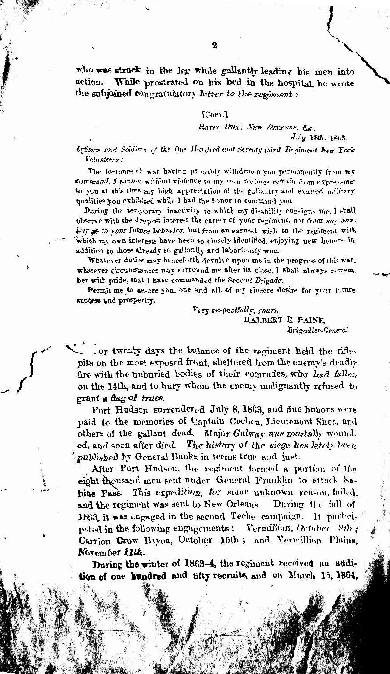 2
who was struck in the leg while gallantly leading his men into
action. While prostrated on his bed in the hospital, he wrote
the subjoined congratulatory letter to the regiment:
[Copy.]
Hotel Dieu, New Orleans, La.
July 18th, 1863.
Officers and Soldiers of the One Hundred and Seventy-third Regiment New York
Volunteers:
The fortunes of war having probably withdrawn me permanently from my
command, I cannot without violence to my own feelings refrain from expressing
to you at this time my high appreciation of the gallantry and exalted military
qualities you exhibited while I had the honor to command you.
During the temporary inactivity to which my disability consigns me, I shall
observe with the deepest interest the career of your regiment, not from any
as to your future behavior, but from an earnest wish to the regiment with
which my own interests have been so closely identified, enjoying new honors in
addition to those already so gallantly and laboriously won.
Whatever duties may henceforth devolve upon me in the progress of this war,
whatever circumstances may surround me after its close, I shall always remem-
ber with pride, that I have commanded the Second Brigade.
Permit me to assure you, one and all, of my sincere desire for your future
success and prosperity.
Very respectfully, yours,
HALBERT E. PAINE,
Brigadier-General.
For twenty days the balance of the regiment held the rifle-
pits on the most exposed front, sheltered from the enemy's deadly
fire with the unburied bodies of their comrades, who had fallen
on the 14th, and to bury whom the enemy malignantly refused to
grant a flag of truce.
Port Hudson surrendered July 8, 1863, and due honors were
paid to the memories of Captain Cochen, Lieutenant Shea, and
others of the gallant dead. Major Galway was mortally wound-
ed, and soon after died. The history of the siege has lately been
published by General Banks in terms true and just.
After Port Hudson, the regiment formed a portion of the
eight thousand men sent under General Franklin to attack Sa-
bine Pass. This expedition, for some unknown reason, failed,
and the regiment was sent to New Orleans. During the fall of
1863, it was engaged in the second Teche campaign. It partici-
pated in the following engagements: Vermillion, October 9th;
Carrion Crow Bayou, October 15th; and Vermillion Plains,
November 11th.
During the winter of 1863-4, the regiment received an addi-
tion of one hundred and fifty recruits, and on March 15, 1864,